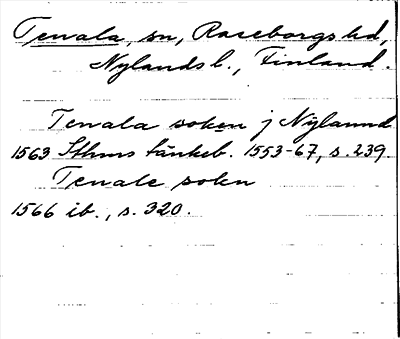 Tenala, sn, Raseborgs hd,
Nylands l., Finland.
Tenala soken j Nÿlannd
1563 Sthms tänkeb. 1553-67, s. 239.
Tenale soken
1566 ib., s. 320.